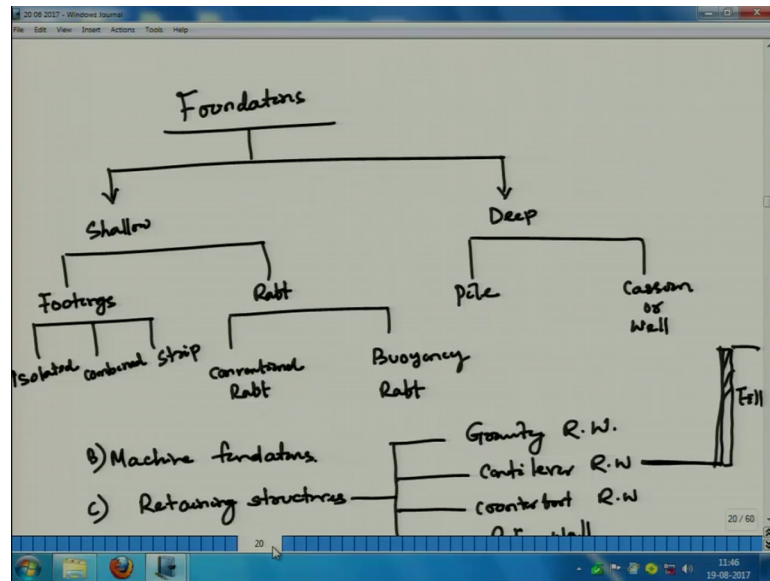 20 06 2017 - Windows Journal
File Edit View Insert Actions Tools Help
Foundatons
Shallow
Deep
Footings
Raft
Pile
Casson
or
Well
Isolated
combined
Strip
Conventional
Raft
Buoyancy
Raft
Fill
B) Machine fondatons.
C) Retaining structures
Gravity R.W.
Cantilever R.W
Counterfort R.W
wall
20 / 60
20
11:46
19-08-2017